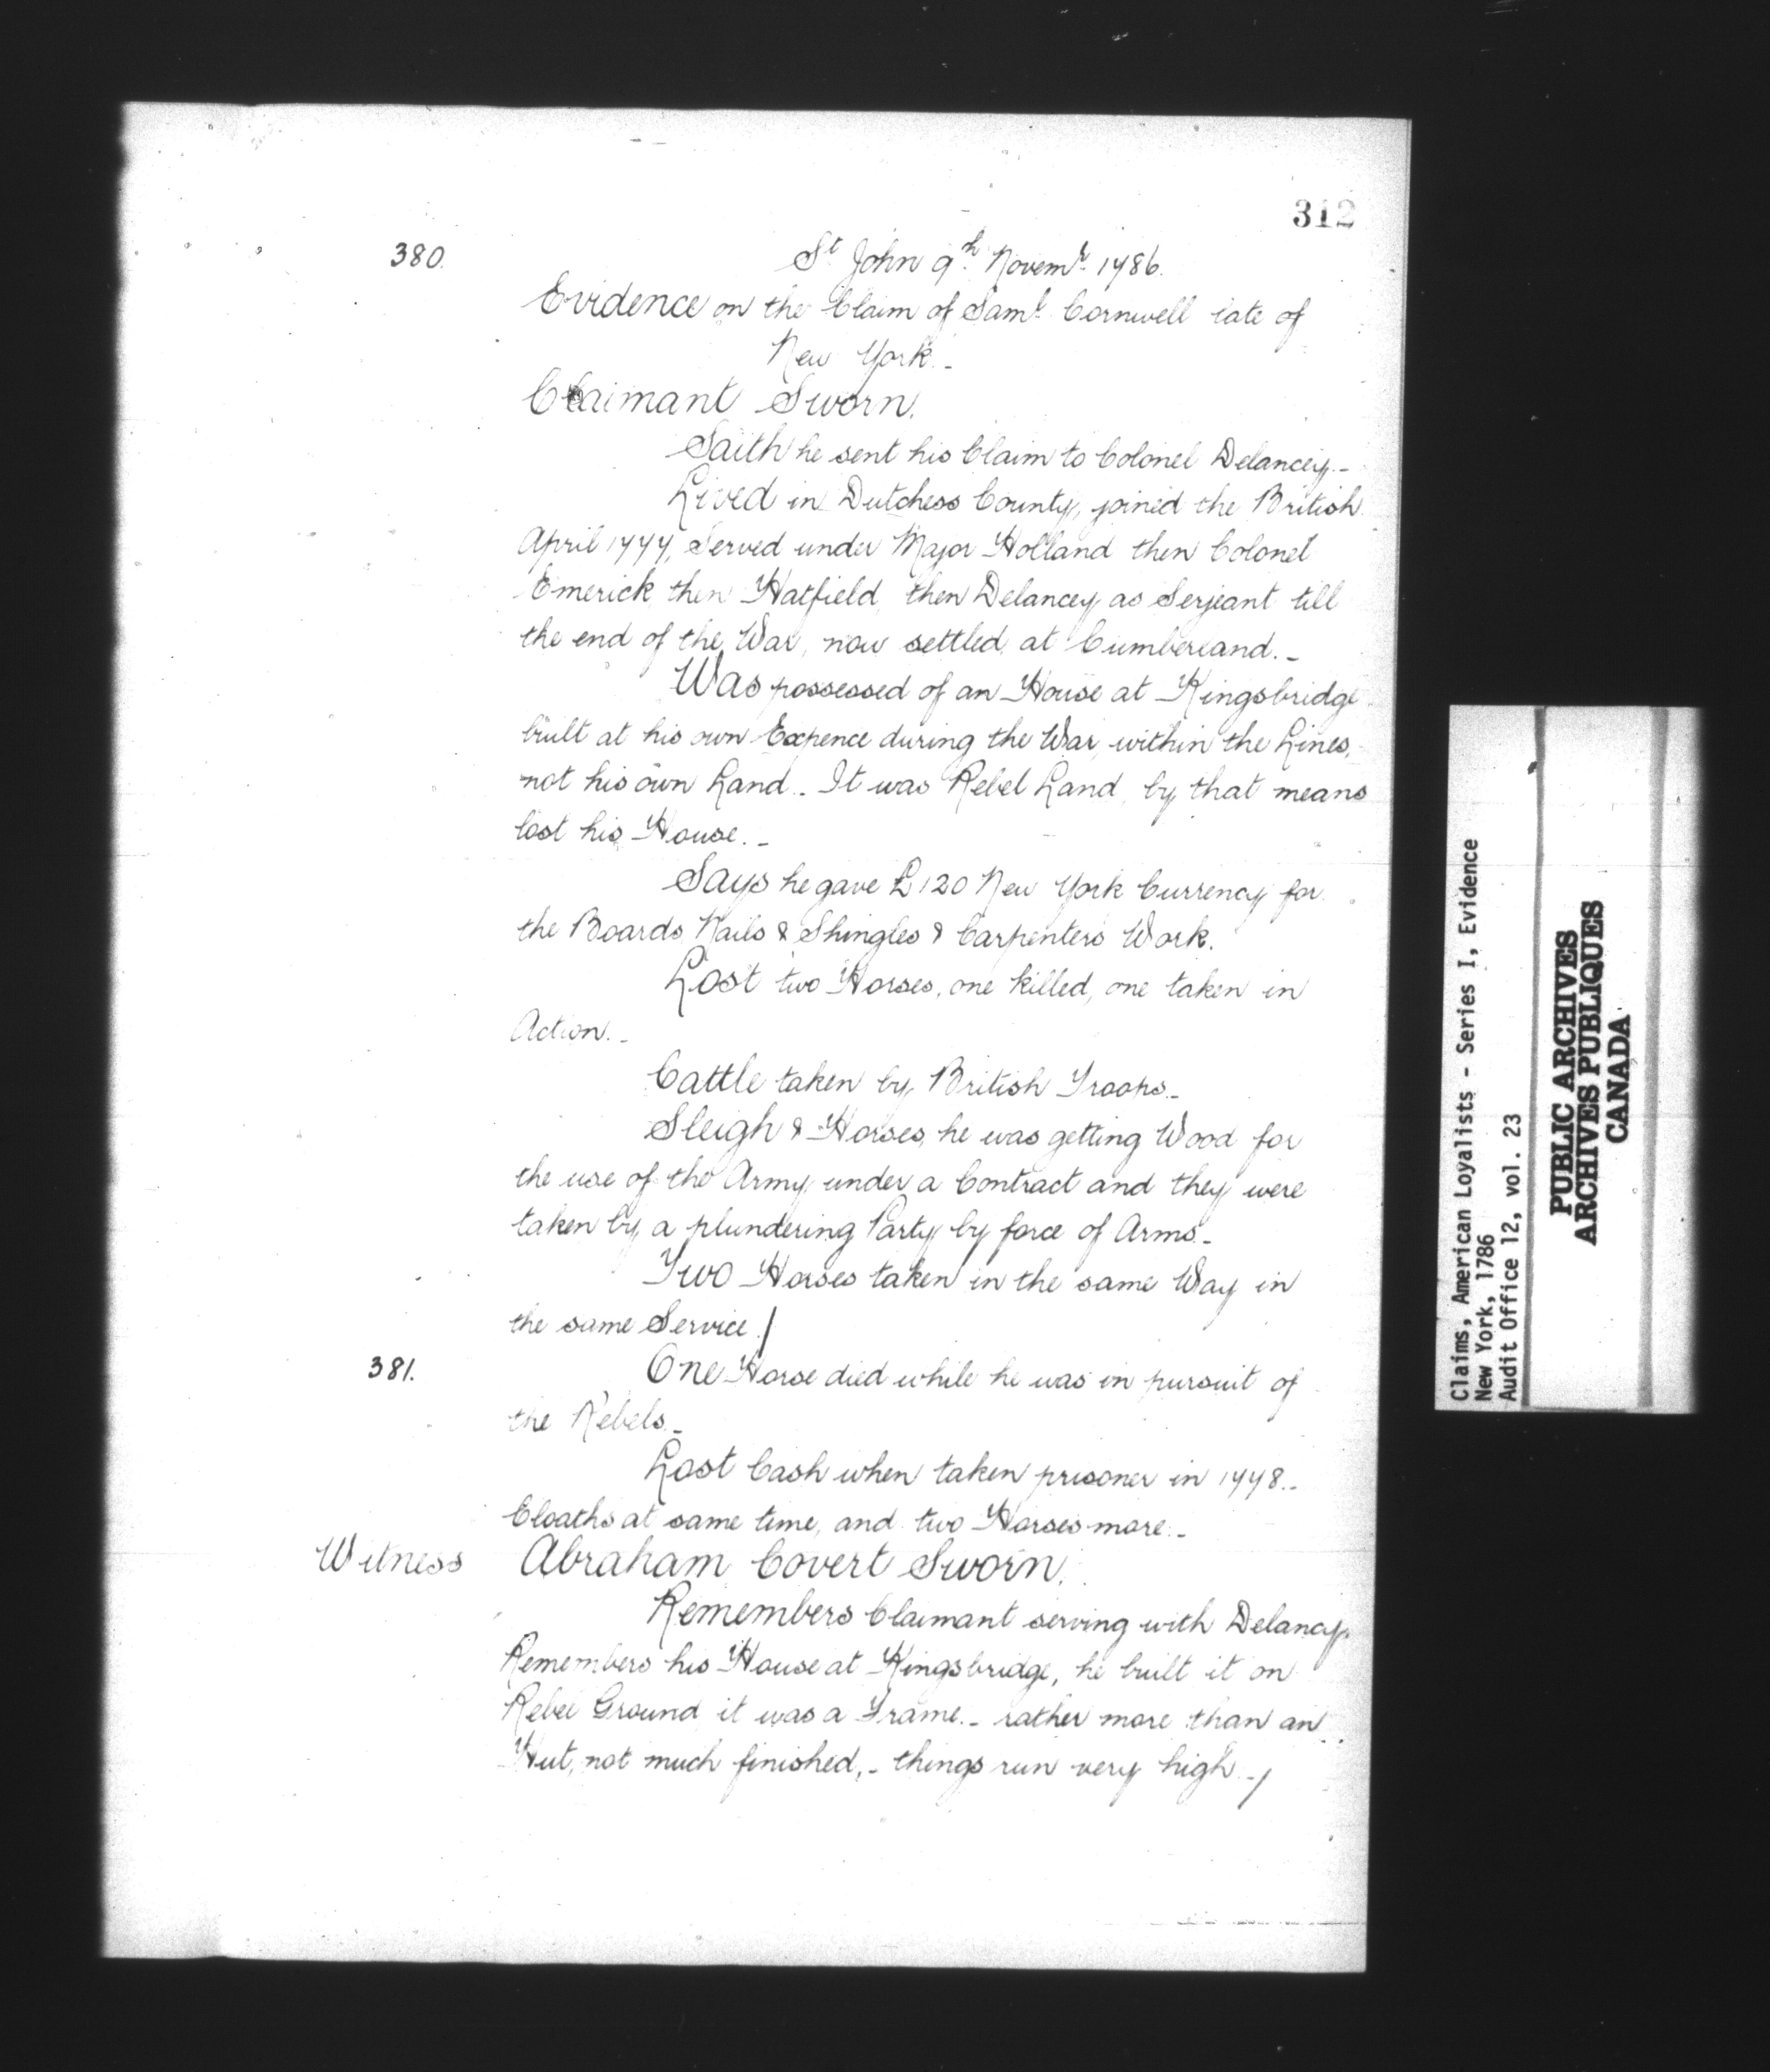 312
380. St John 9th Novemr 1786.
Evidence on the Claim of Saml Cornwell late of
New York.-
Claimant Sworn.
Saith he sent his Claim to Colonel Delancey.-
Lived in Dutchess County, joined the British
April 1777, Served under Major Holland then Colonel
Emerick then Hatfield, then Delancey as Serjeant till
the end of the War, now settled at Cumberland.-
Was possessed of an House at Kingsbridge
built at his own Expence during the War, within the Lines,
not his own Land.- It was Rebel Land, by that means
lost his House.-
Says he gave £120 New York Currency for
the Boards, Nails & Shingles & Carpenters Work.
Lost two Horses, one killed, one taken in
Action.-
Cattle taken by British Troops.-
Sleigh & Horses, he was getting Wood for
the use of the Army under a Contract and they were
taken by a plundering Party by force of Arms.-
Two Horses taken in the same Way in
the same Service./
381. One Horse died while he was in pursuit of
the Rebels.-
Lost Cash when taken prisoner in 1778.-
Cloaths at same time, and two Horses more.-
Witness Abraham Covert Sworn.
Remembers Claimant serving with Delancy.
Remembers his House at Kingsbridge, he built it on
Rebel Ground it was a Frame.- rather more than an
Hut, not much finished,- things run very high.-/
Claims, American Loyalists - Series I, Evidence
New York, 1786
Audit Office 12, vol. 23
PUBLIC ARCHIVES
ARCHIVES PUBLIQUES
CANADA